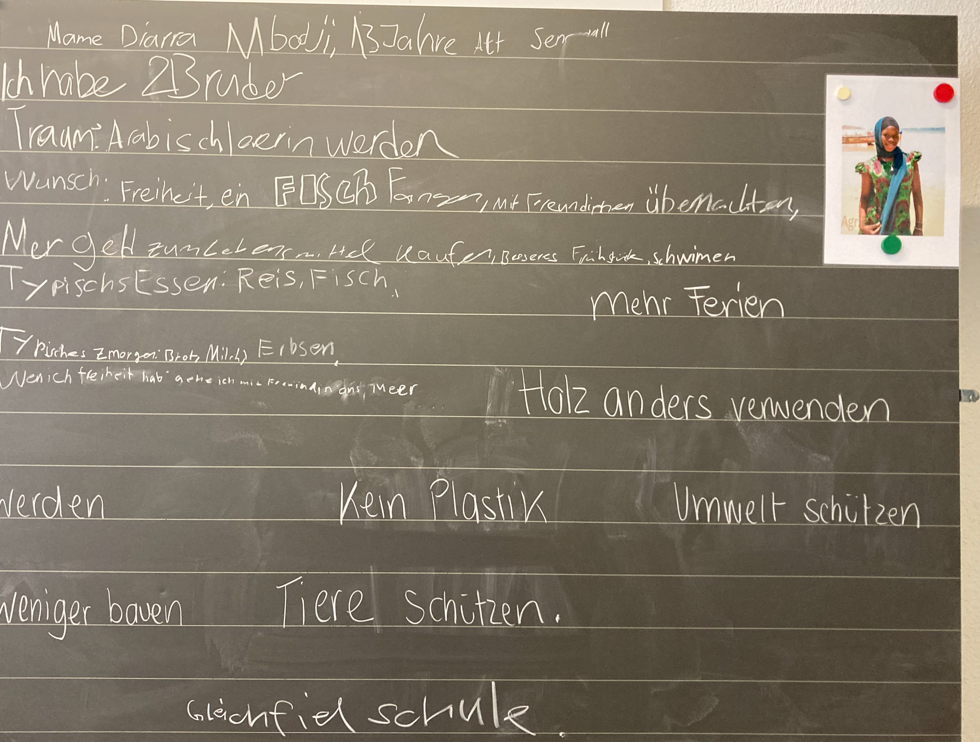 Mame Diarra Mbodji, 13 Jahre Alt Senegall
Ich habe 2 Bruder
Traum: Arabischleerin werden
Wunsch: Freiheit, ein FISCH Fangen, mit Freundinnen übernachten,
Mer geld zum Lebensmittel kaufen, Besseres Frühstük, schwimen
Typischs Essen: Reis, Fisch,
mehr Ferien
Typisches Zmorgen: Brot, Milch, Erbsen,
Wen ich freiheit hab gehe ich mit Freundin ans Meer
Holz anders verwenden
werden Kein Plastik Umwelt schützen
weniger bauen Tiere schützen.
Gleichfiel schule.